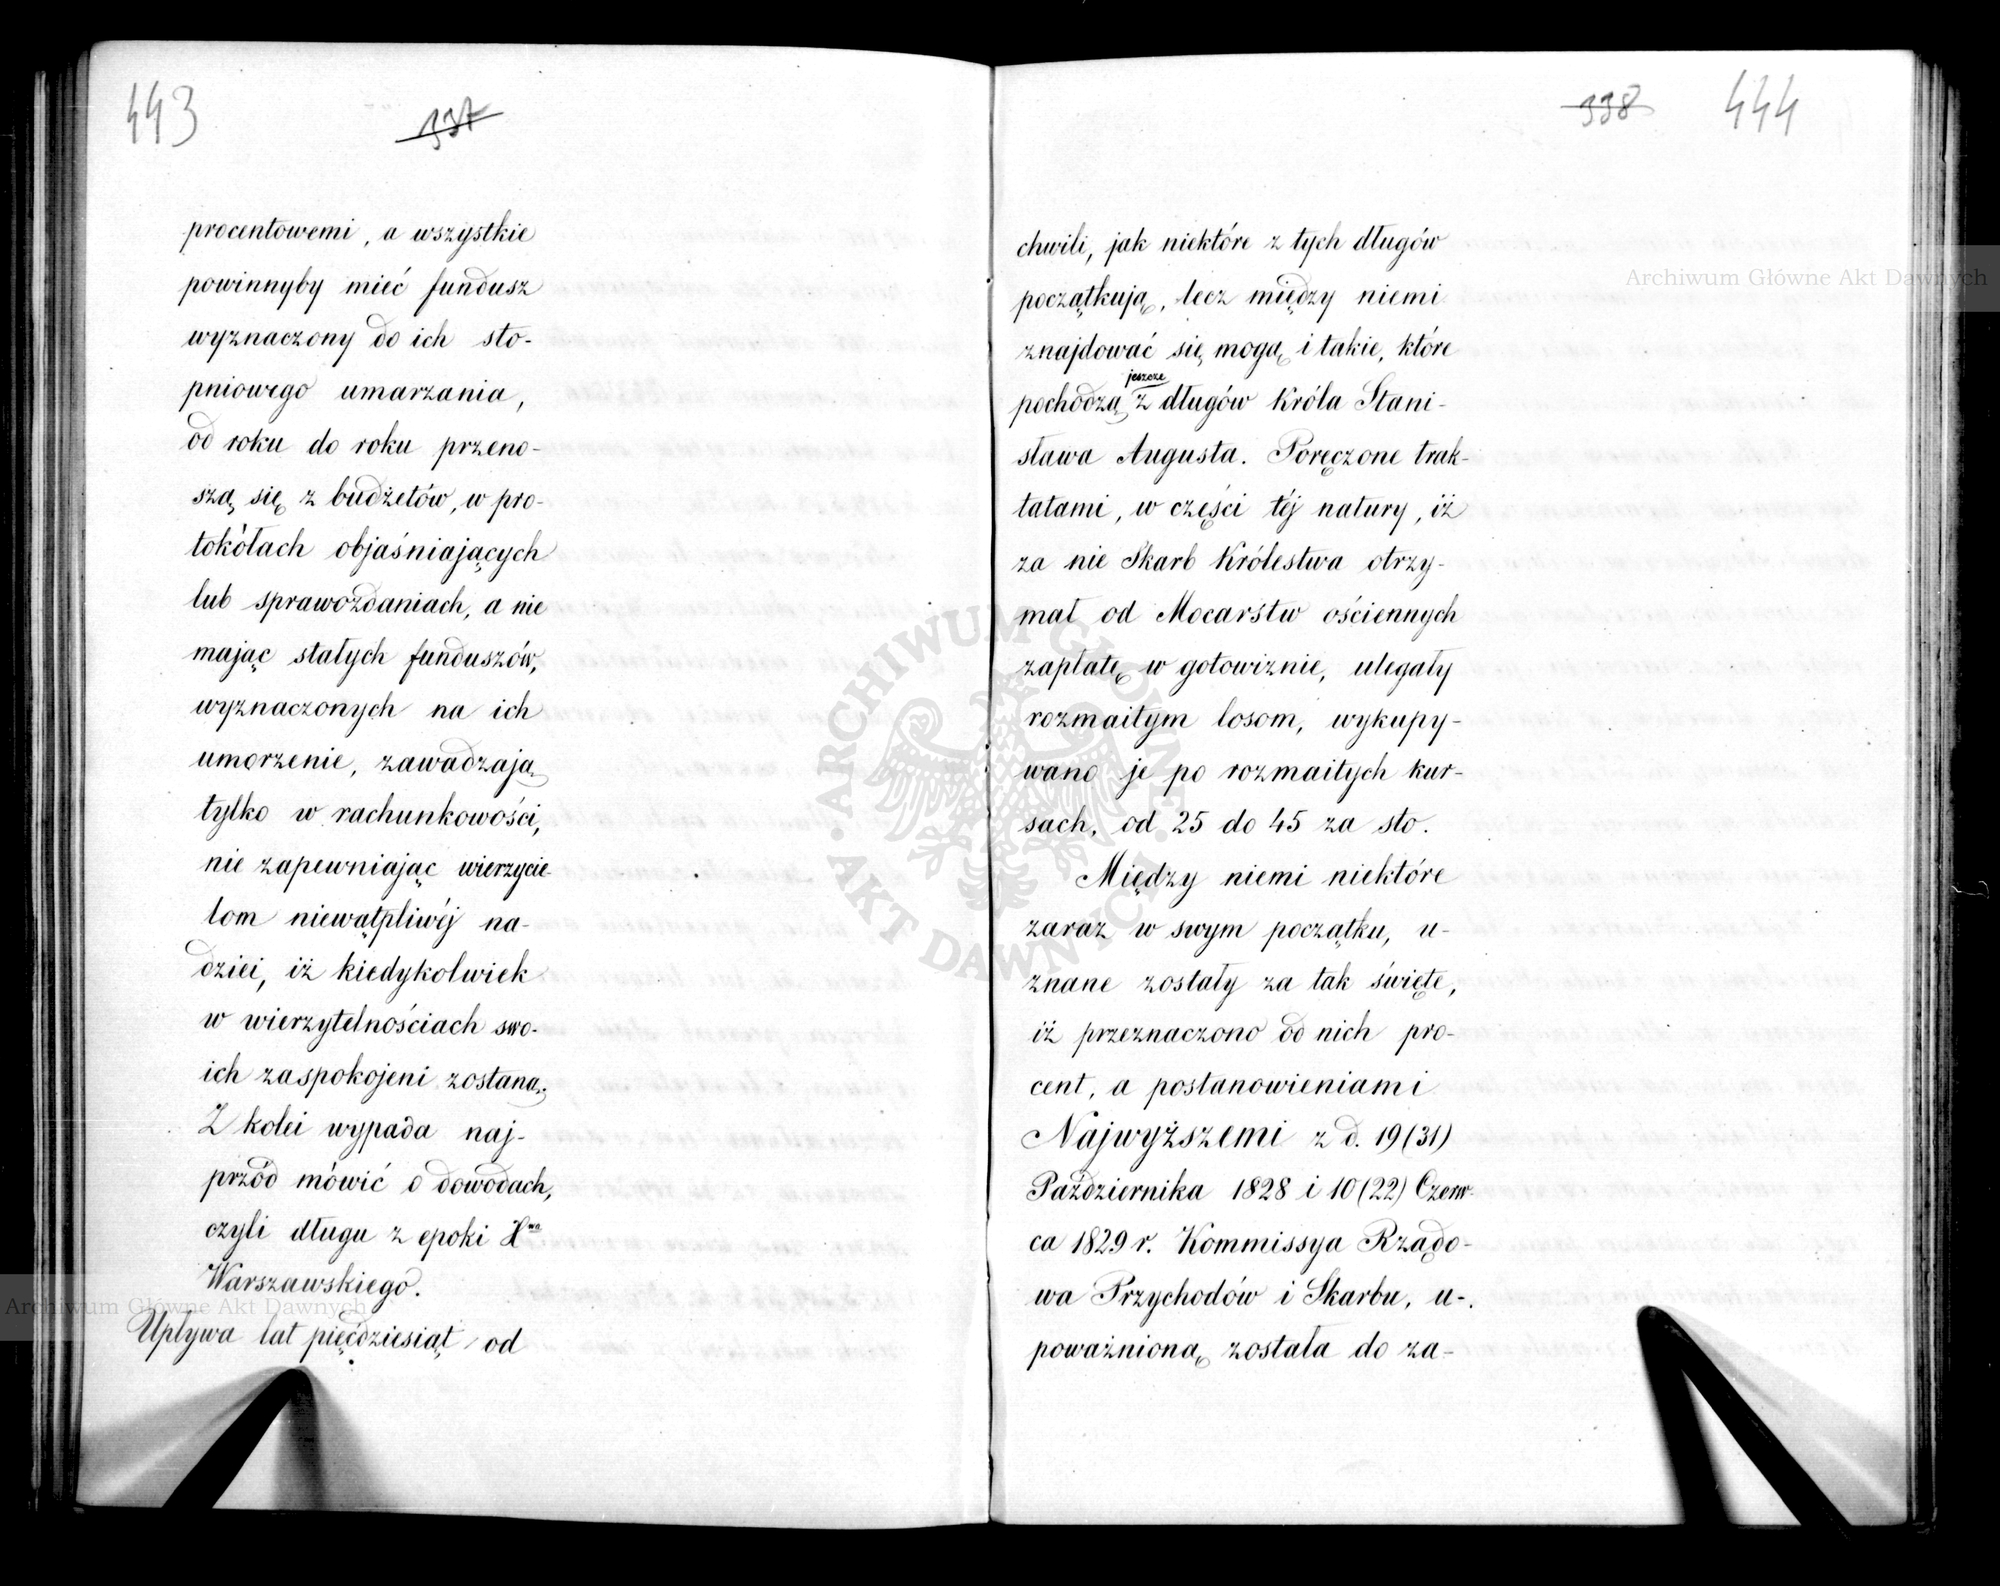 443
337
procentowemi, a wszystkie
powinnyby mieć fundusz
wyznaczony do ich sto-
pniowego umarzania,
od roku do roku przeno-
szą się z budżetów, w pro-
tokółach objaśniających
lub sprawozdaniach, a nie
mając stałych funduszów,
wyznaczonych na ich
umorzenie, zawadzają
tylko w rachunkowości,
nie zapewniając wierzycie-
lom niewątpliwéj na-
dziei, iż kiedykolwiek
w wierzytelnościach swo-
ich zaspokojeni zostaną.
Z kolei wypada naj-
przód mówić o dowodach,
czyli długu z epoki Xwa
Warszawskiego.
Upływa lat pięćdziesiąt od
338
444
chwili, jak niektóre z tych długów
początkują, lecz między niemi
znajdować się mogą i takie, które
jeszcze
pochodzą z długów Króla Stani-
sława Augusta. Poręczone trak-
tatami, w części téj natury, iż
za nie Skarb Królestwa otrzy-
mał od Mocarstw ościennych
zapłatę w gotowiznie, ulegały
rozmaitym losom, wykupy-
wano je po rozmaitych kur-
sach, od 25 do 45 za sto.
Między niemi niektóre
zaraz w swym początku, u-
znane zostały za tak święte,
iż przeznaczono od nich pro-
cent, a postanowieniami
Najwyższemi z d. 19 (31)
Października 1828 i 10 (22) Czerw-
ca 1829 r. Kommissya Rządo-
wa Przychodów i Skarbu, u-
poważnioną została do za-
Archiwum Główne Akt Dawnych
ARCHIWUM GŁÓWNE AKT DAWNYCH
Archiwum Główne Akt Dawnych